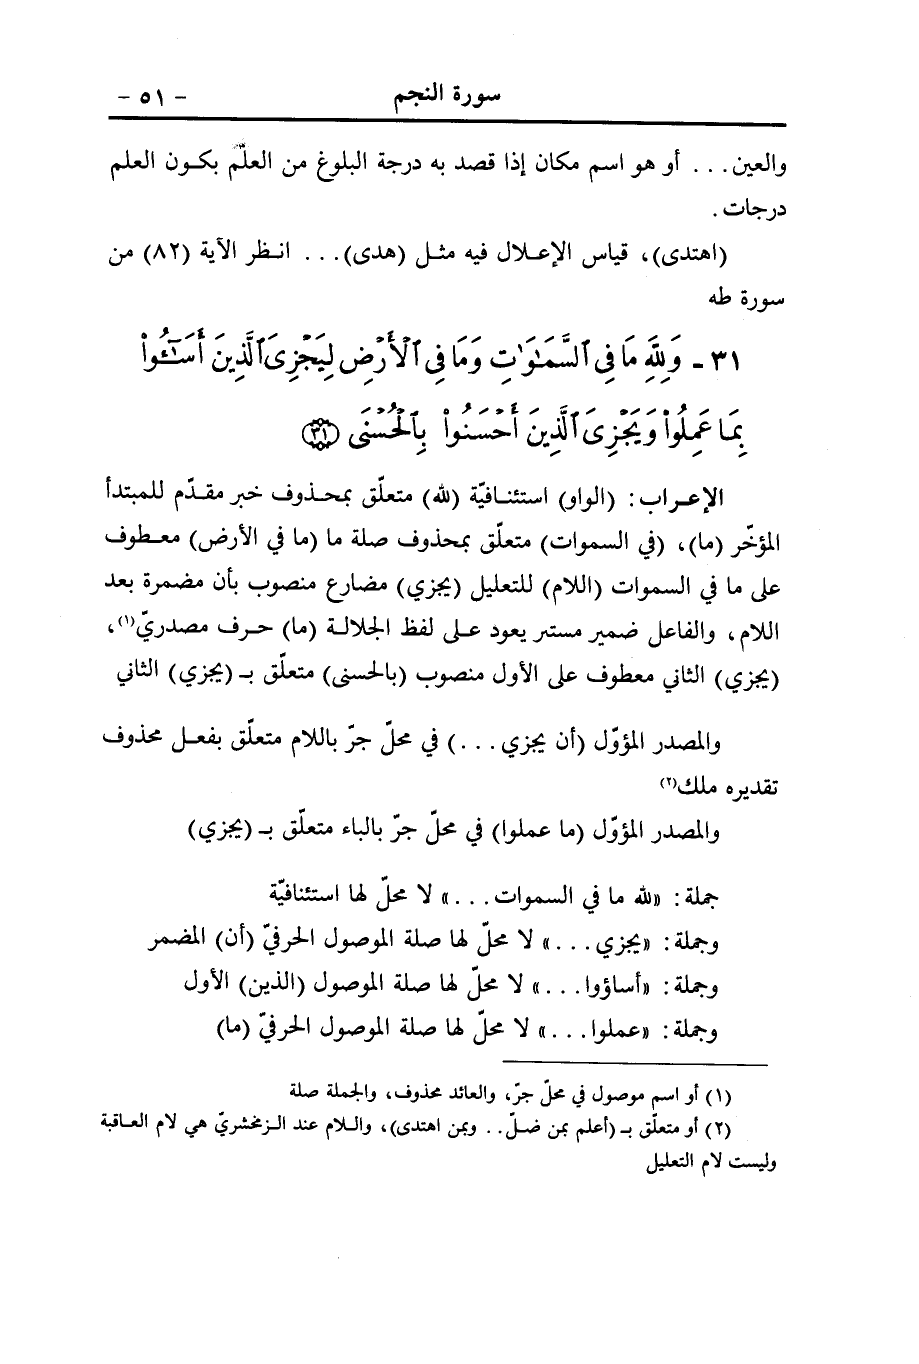 سورة النجم - ٥١ -
والعين... أو هو اسم مكان إذا قصد به درجة البلوغ من العلم بكون العلم
درجات.
(اهتدى)، قياس الإعلال فيه مثل (هدى)... انظر الآية (٨٢) من
سورة طه
٣١ - وَلِلَّهِ مَا فِي ٱلسَّمَٰوَٰتِ وَمَا فِي ٱلْأَرْضِ لِيَجْزِيَ ٱلَّذِينَ أَسَٰٓـُٔوا۟
بِمَا عَمِلُوا۟ وَيَجْزِيَ ٱلَّذِينَ أَحْسَنُوا۟ بِٱلْحُسْنَى ٣١
الإعراب: (الواو) استئنافيّة (لله) متعلّق بمحذوف خبر مقدّم للمبتدأ
المؤخّر (ما)، (في السموات) متعلّق بمحذوف صلة ما (ما في الأرض) معطوف
على ما في السموات (اللام) للتعليل (يجزي) مضارع منصوب بأن مضمرة بعد
اللام، والفاعل ضمير مستتر يعود على لفظ الجلالة (ما) حرف مصدريّ(١)،
(يجزي) الثاني معطوف على الأول منصوب (بالحسنى) متعلّق بـ (يجزي) الثاني
والمصدر المؤوّل (أن يجزي...) في محلّ جرّ باللام متعلّق بفعل محذوف
تقديره ملك(٢)
والمصدر المؤوّل (ما عملوا) في محلّ جرّ بالباء متعلّق بـ (يجزي)
جملة: «لله ما في السموات...» لا محلّ لها استئنافيّة
وجملة: «يجزي...» لا محلّ لها صلة الموصول الحرفيّ (أن) المضمر
وجملة: «أساؤوا...» لا محلّ لها صلة الموصول (الذين) الأول
وجملة: «عملوا...» لا محلّ لها صلة الموصول الحرفيّ (ما)
(١) أو اسم موصول في محلّ جرّ، والعائد محذوف، والجملة صلة
(٢) أو متعلّق بـ (أعلم بمن ضلّ.. وبمن اهتدى)، واللام عند الزمخشريّ هي لام العاقبة
وليست لام التعليل